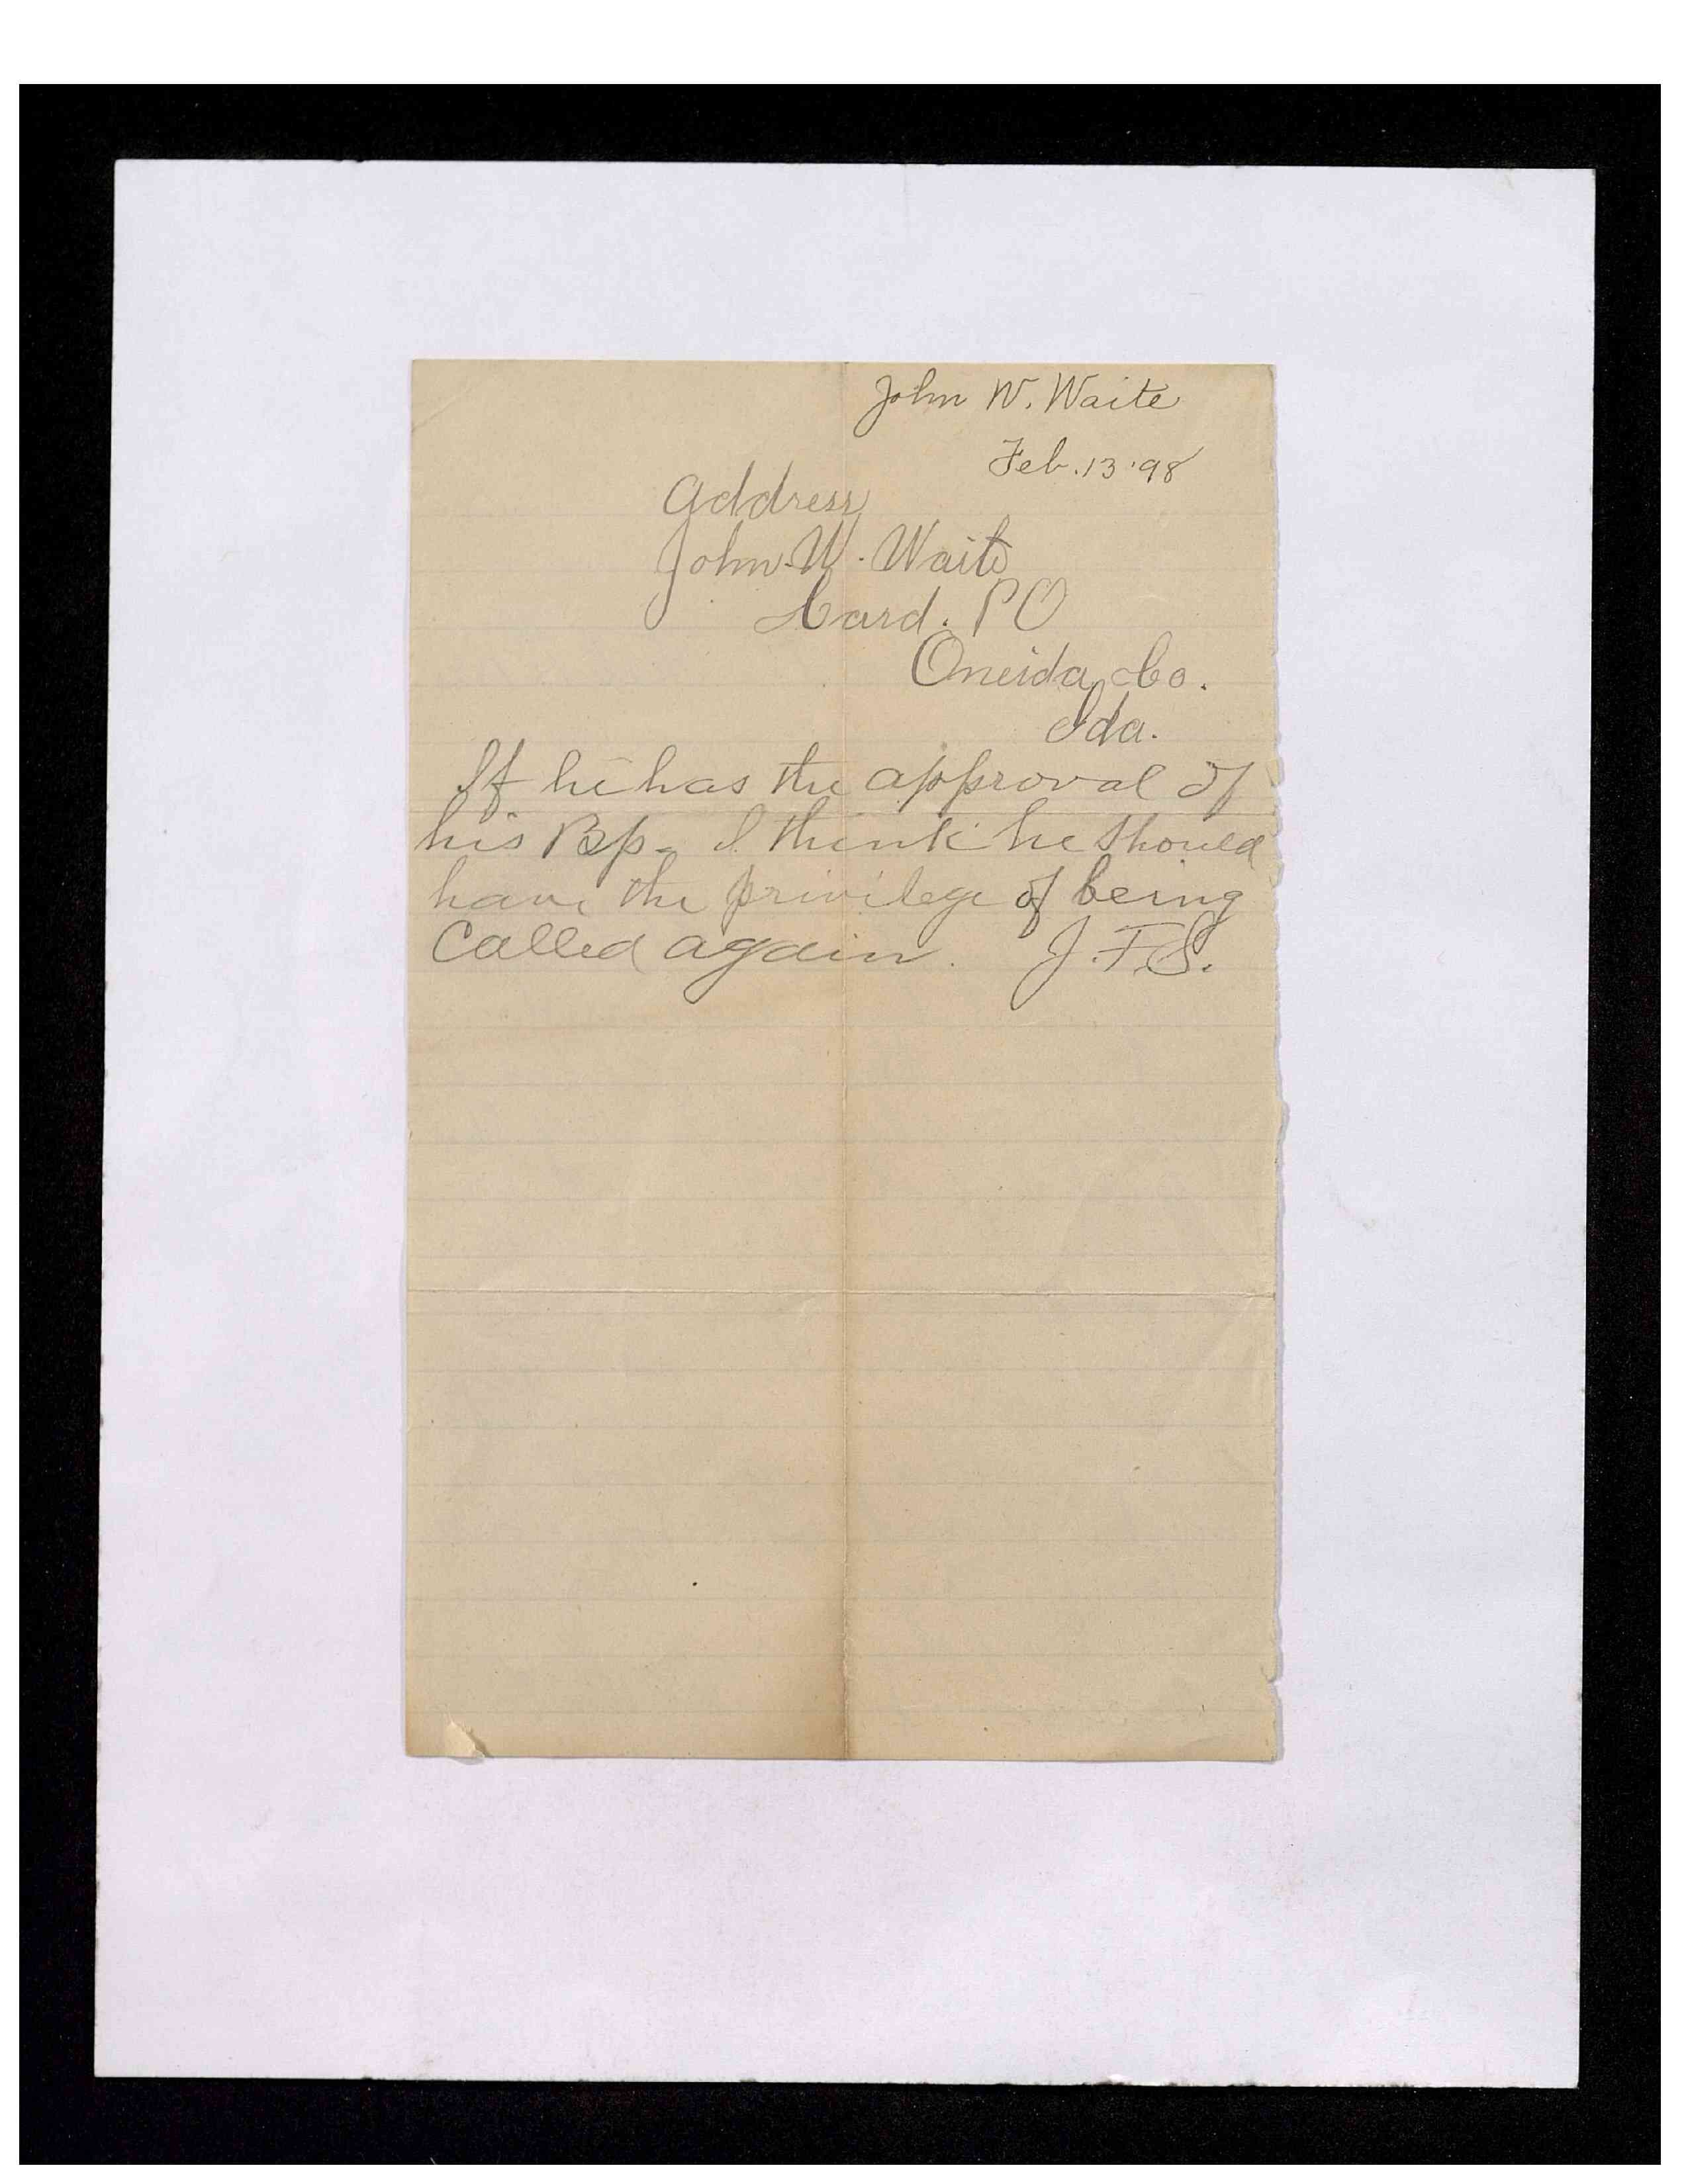 John W. Waite
Feb. 13 '98
Address
John. W. Waite
Card. PO
Oneida, Co.
Ida.
If he has the approval of
his Bp. I think he should
have the privilege of being
called again. J.F.S.